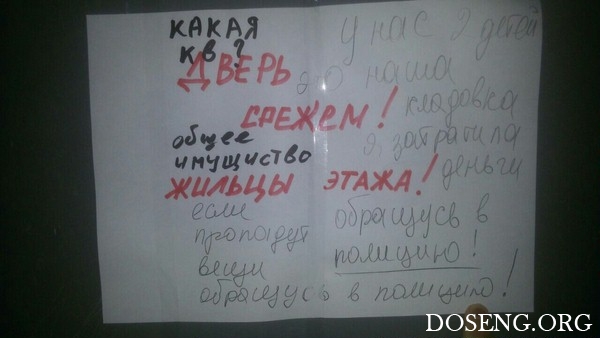 КАКАЯ
КВ?
ДВЕРЬ
СРЕЖЕМ!
общее
имущиство
ЖИЛЬЦЫ ЭТАЖА!
у нас 2 детей
это наша
кладовка
я затратила
деньги
если
пропадут
вещи
обращусь в полицию!
обращусь в
полицию!
DOSENG.ORG